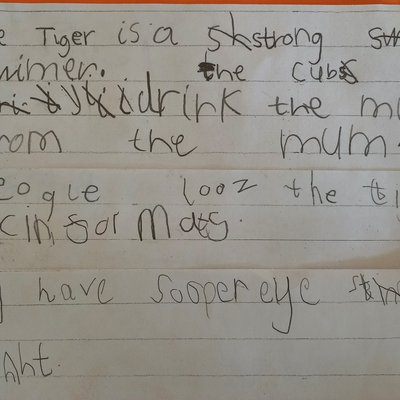 e Tiger is a strong
wimer. the cubs
drink the m
rom the mum
eople looz the ti
cin for mats.
y have sooper eye
ight.